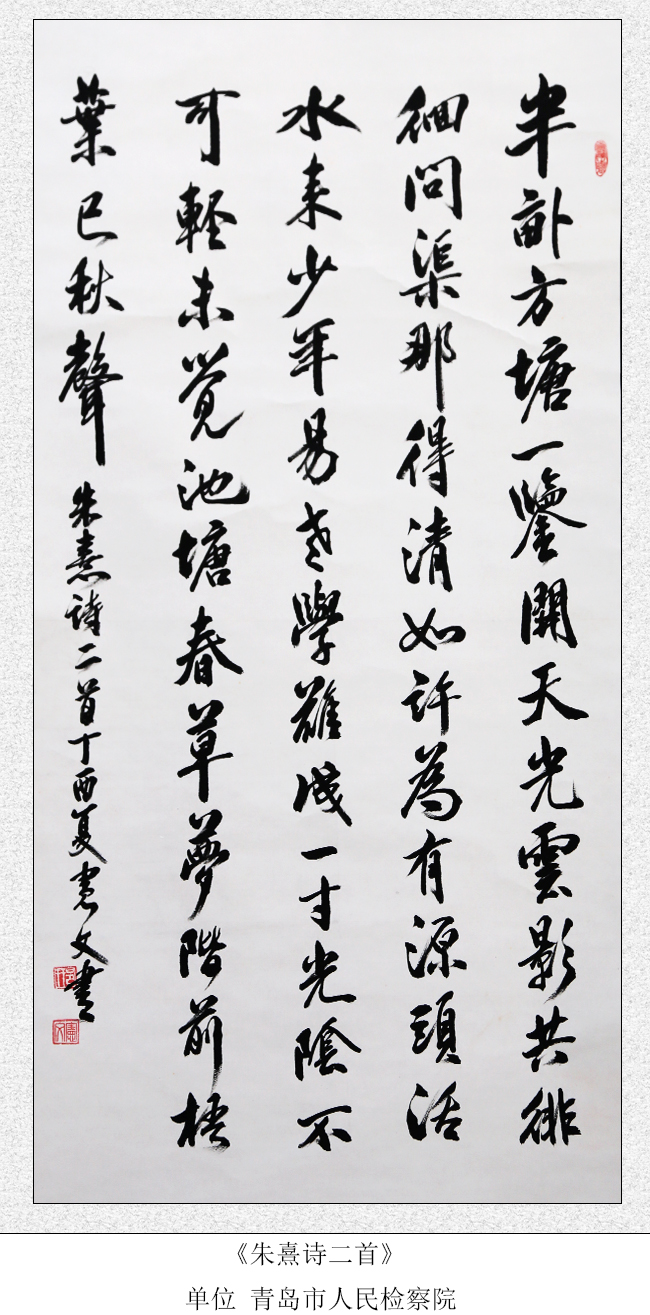 半畝方塘一鑒開天光雲影共徘
徊問渠那得清如許為有源頭活
水来少年易老學難成一寸光陰不
可輕未覺池塘春草夢階前梧
葉已秋聲
朱熹诗二首丁酉夏憲文書
《朱熹诗二首》
单位 青岛市人民检察院